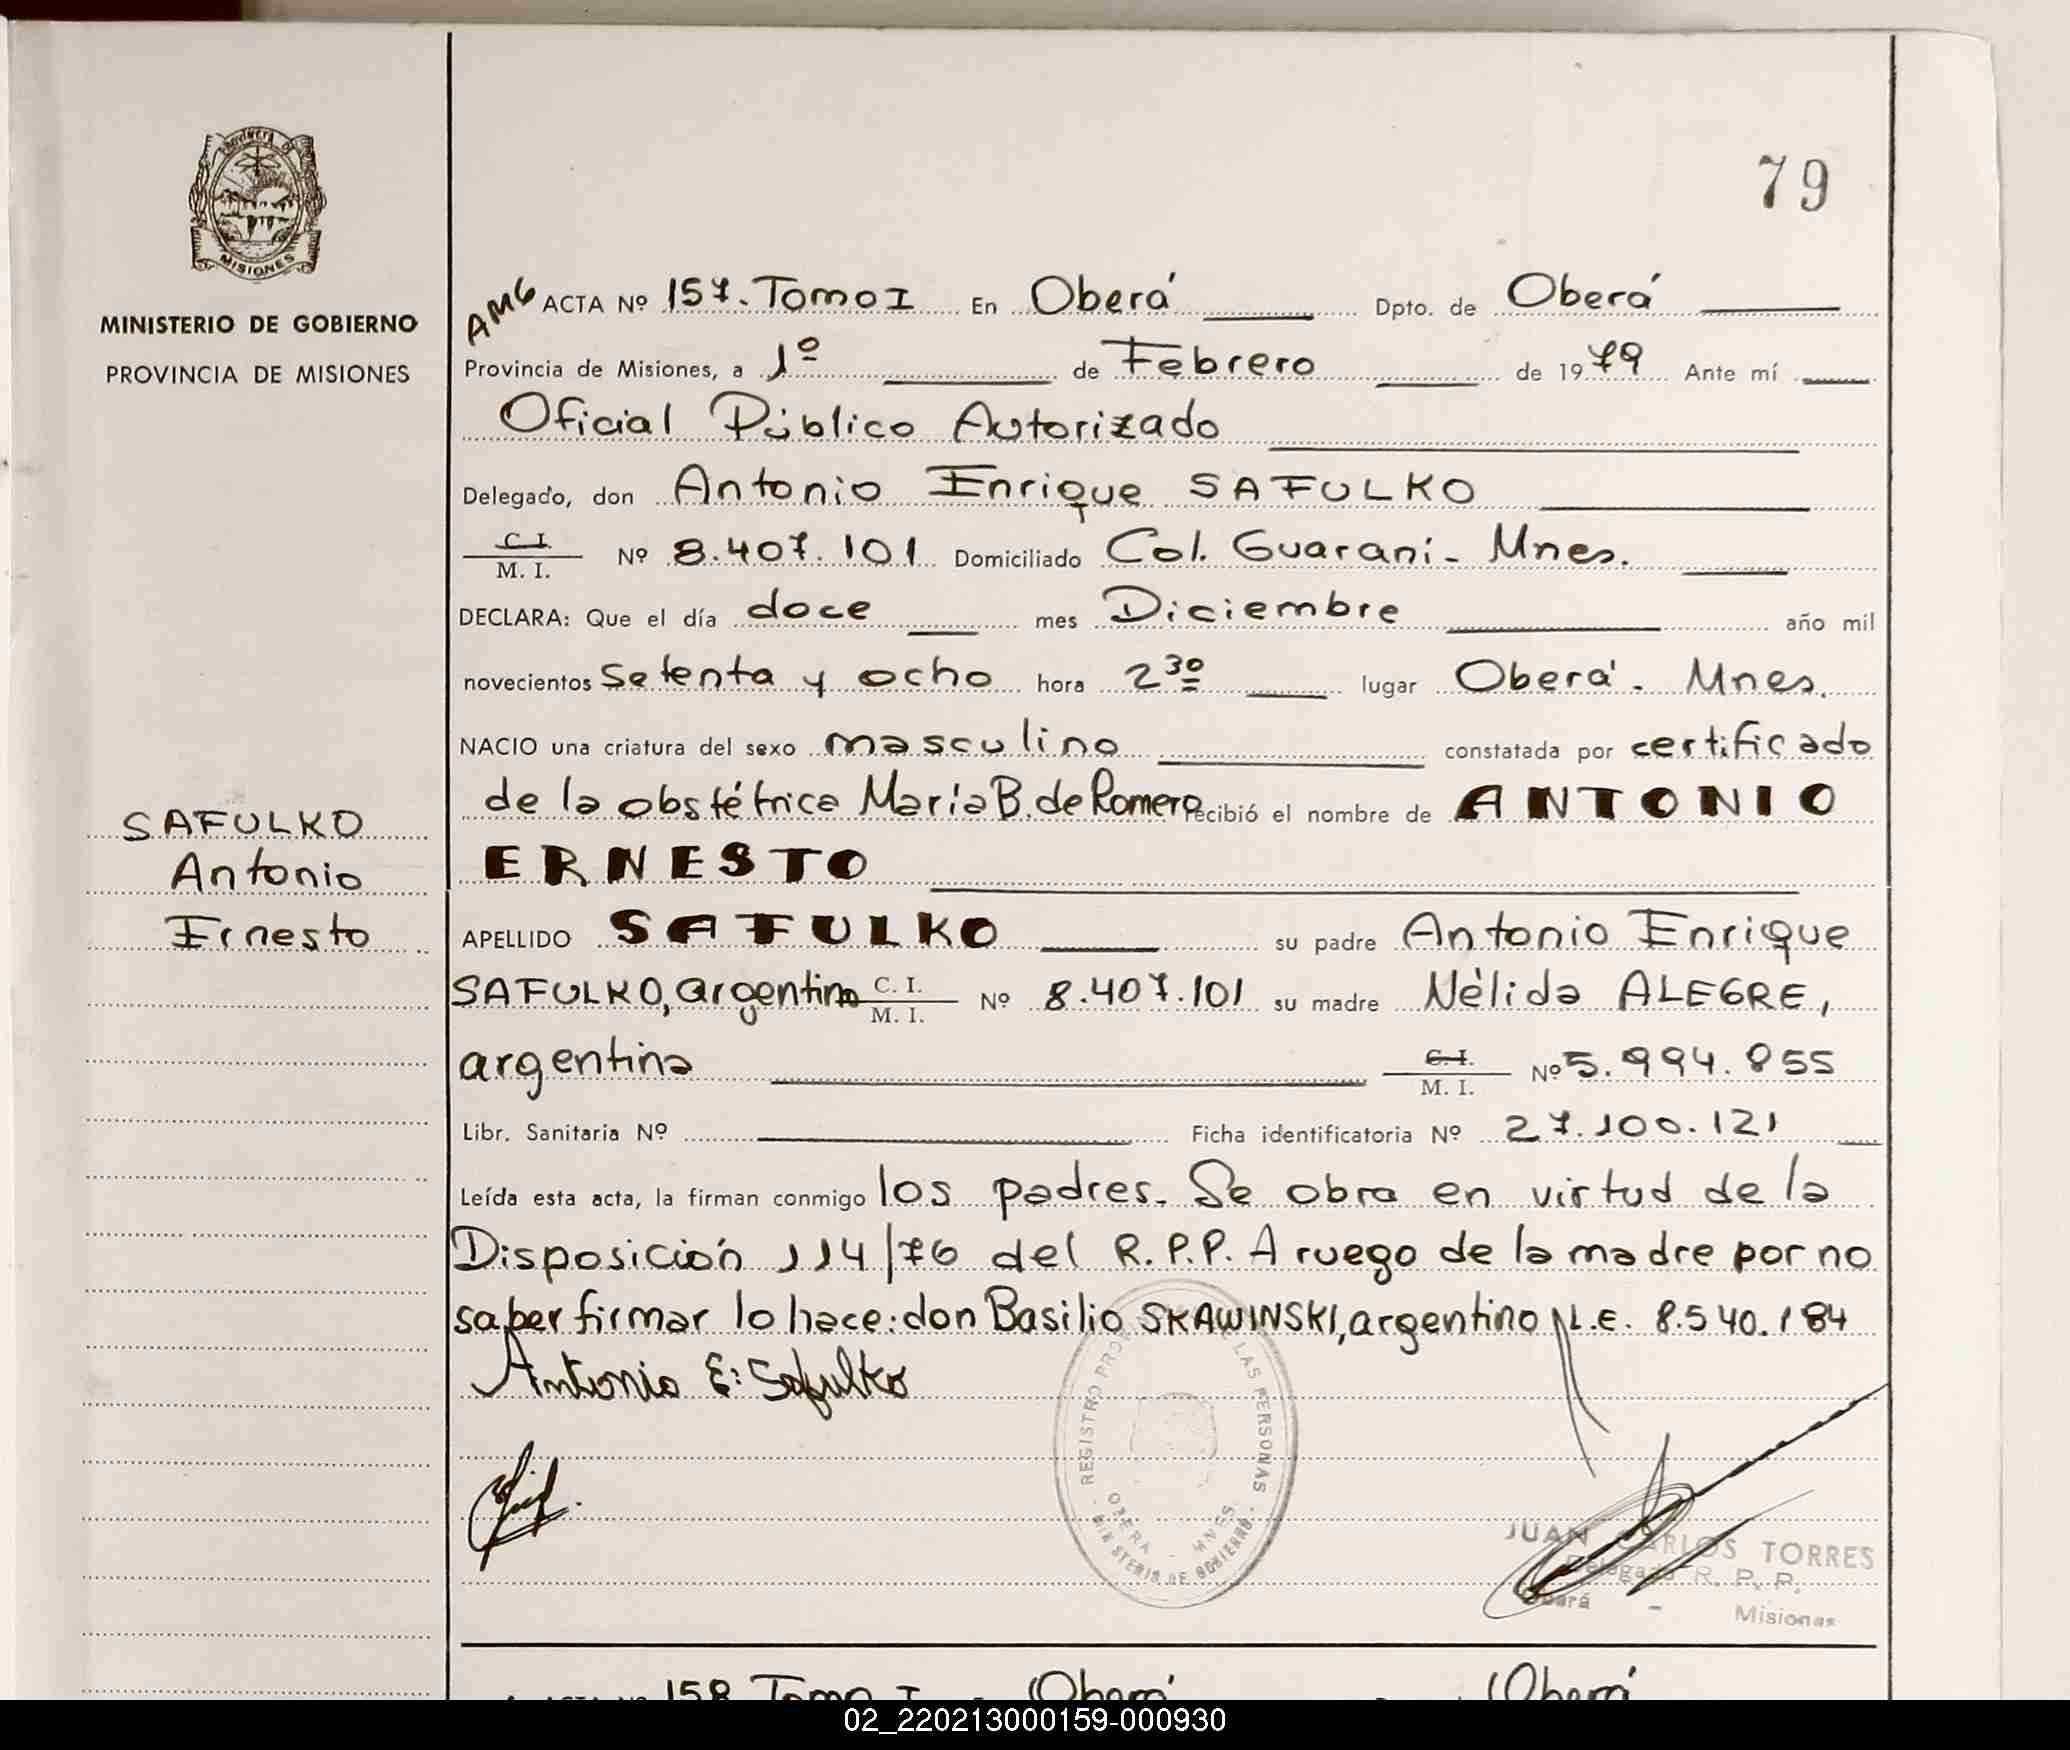 79
PROVINCIA DE
MISIONES
MINISTERIO DE GOBIERNO
PROVINCIA DE MISIONES
AMG ACTA Nº 157. Tomo I En Oberá Dpto. de Oberá
Provincia de Misiones, a 1º de Febrero de 1979 Ante mí
Oficial Público Autorizado
Delegado, don Antonio Enrique SAFULKO
C. I. / M. I. Nº 8.407.101 Domiciliado Col. Guaraní - Mnes.
DECLARA: Que el día doce mes Diciembre año mil
novecientos setenta y ocho hora 2 30 lugar Oberá. Mnes.
NACIO una criatura del sexo masculino constatada por certificado
de la obstétrica María B. de Romero recibió el nombre de ANTONIO
ERNESTO
SAFULKO
Antonio
Ernesto
APELLIDO SAFULKO su padre Antonio Enrique
SAFULKO, argentino C. I. / M. I. Nº 8.407.101 su madre Nélida ALEGRE,
argentina C. I. / M. I. Nº 5.994.855
Libr. Sanitaria Nº Ficha identificatoria Nº 27.100.121
Leída esta acta, la firman conmigo los padres. Se obra en virtud de la
Disposición 114/76 del R.P.P. A ruego de la madre por no
saber firmar lo hace: don Basilio SKAWINSKI, argentino L.E. 8.540.184
Antonio E. Safulko
REGISTRO PROV LAS PERSONAS
OBERA - MNES.
MINISTERIO DE GOBIERNO
JUAN CARLOS TORRES
Delegado R. P. P.
Oberá - Misiones
ACTA Nº 158 Tomo I Oberá Oberá
02_220213000159-000930